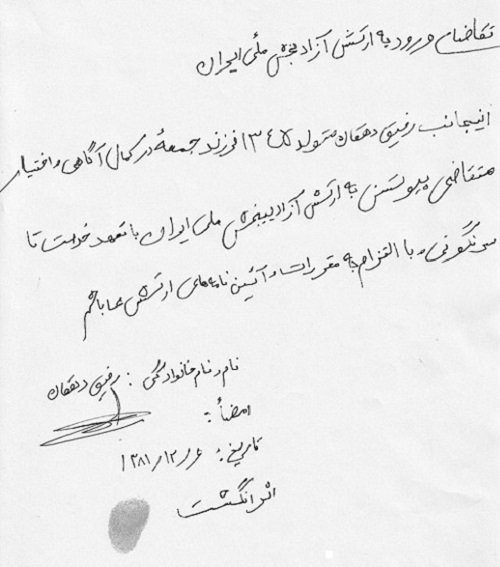 تقاضای ورود به ارتش آزادبخش ملی ایران
اینجانب رفیق دهقان متولد ۱۳۴۵ فرزند جمعه در کمال آگاهی و اختیار
متقاضی پیوستن به ارتش آزادیبخش ملی ایران با تعهد خدمت تا
سرنگونی و با التزام به مقررات و آئین نامه‌های ارتش میباشم
نام و نام خانوادگی : رفیق دهقان
امضأ :
تاریخ : ۱۳۸۱/۱۲/۶
اثر انگشت